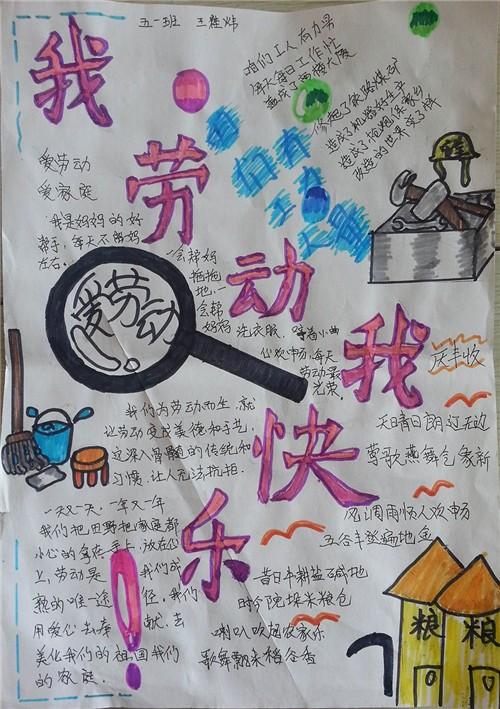 五一班 王
我劳动我快乐
咱们工人有力量
每天每日工作忙
盖成了高楼大厦
修起了铁路煤矿
改造的世界变了样
咱们
工人
有力量
爱劳动
爱家庭
我是妈妈的好
帮手，每天不离妈
左右。
一会帮妈
拖拖
地，一
会帮
妈妈洗衣服，
哼着小曲
心欢畅，每天
劳动最
光荣。
爱劳动
我们为劳动而生，就
让劳动变成美德和手艺
这深入骨髓的传统和
习惯，让人无法抗拒
一天又一天，一年又一年
我们把田野把家庭都
小心的拿在手上，放在心
上，劳动是我们成
熟的唯一途径，我们
用爱心去奉献，去
美化我们的祖国我们
的家庭。
庆丰收
天晴日朗过无边
莺歌燕舞气象新
风调雨顺人欢畅
五谷丰登遍地金
昔日牛耕盐碱地
时今隗垛米粮包
喇叭欢迎农家乐
歌舞飘来稻谷香
粮
粮